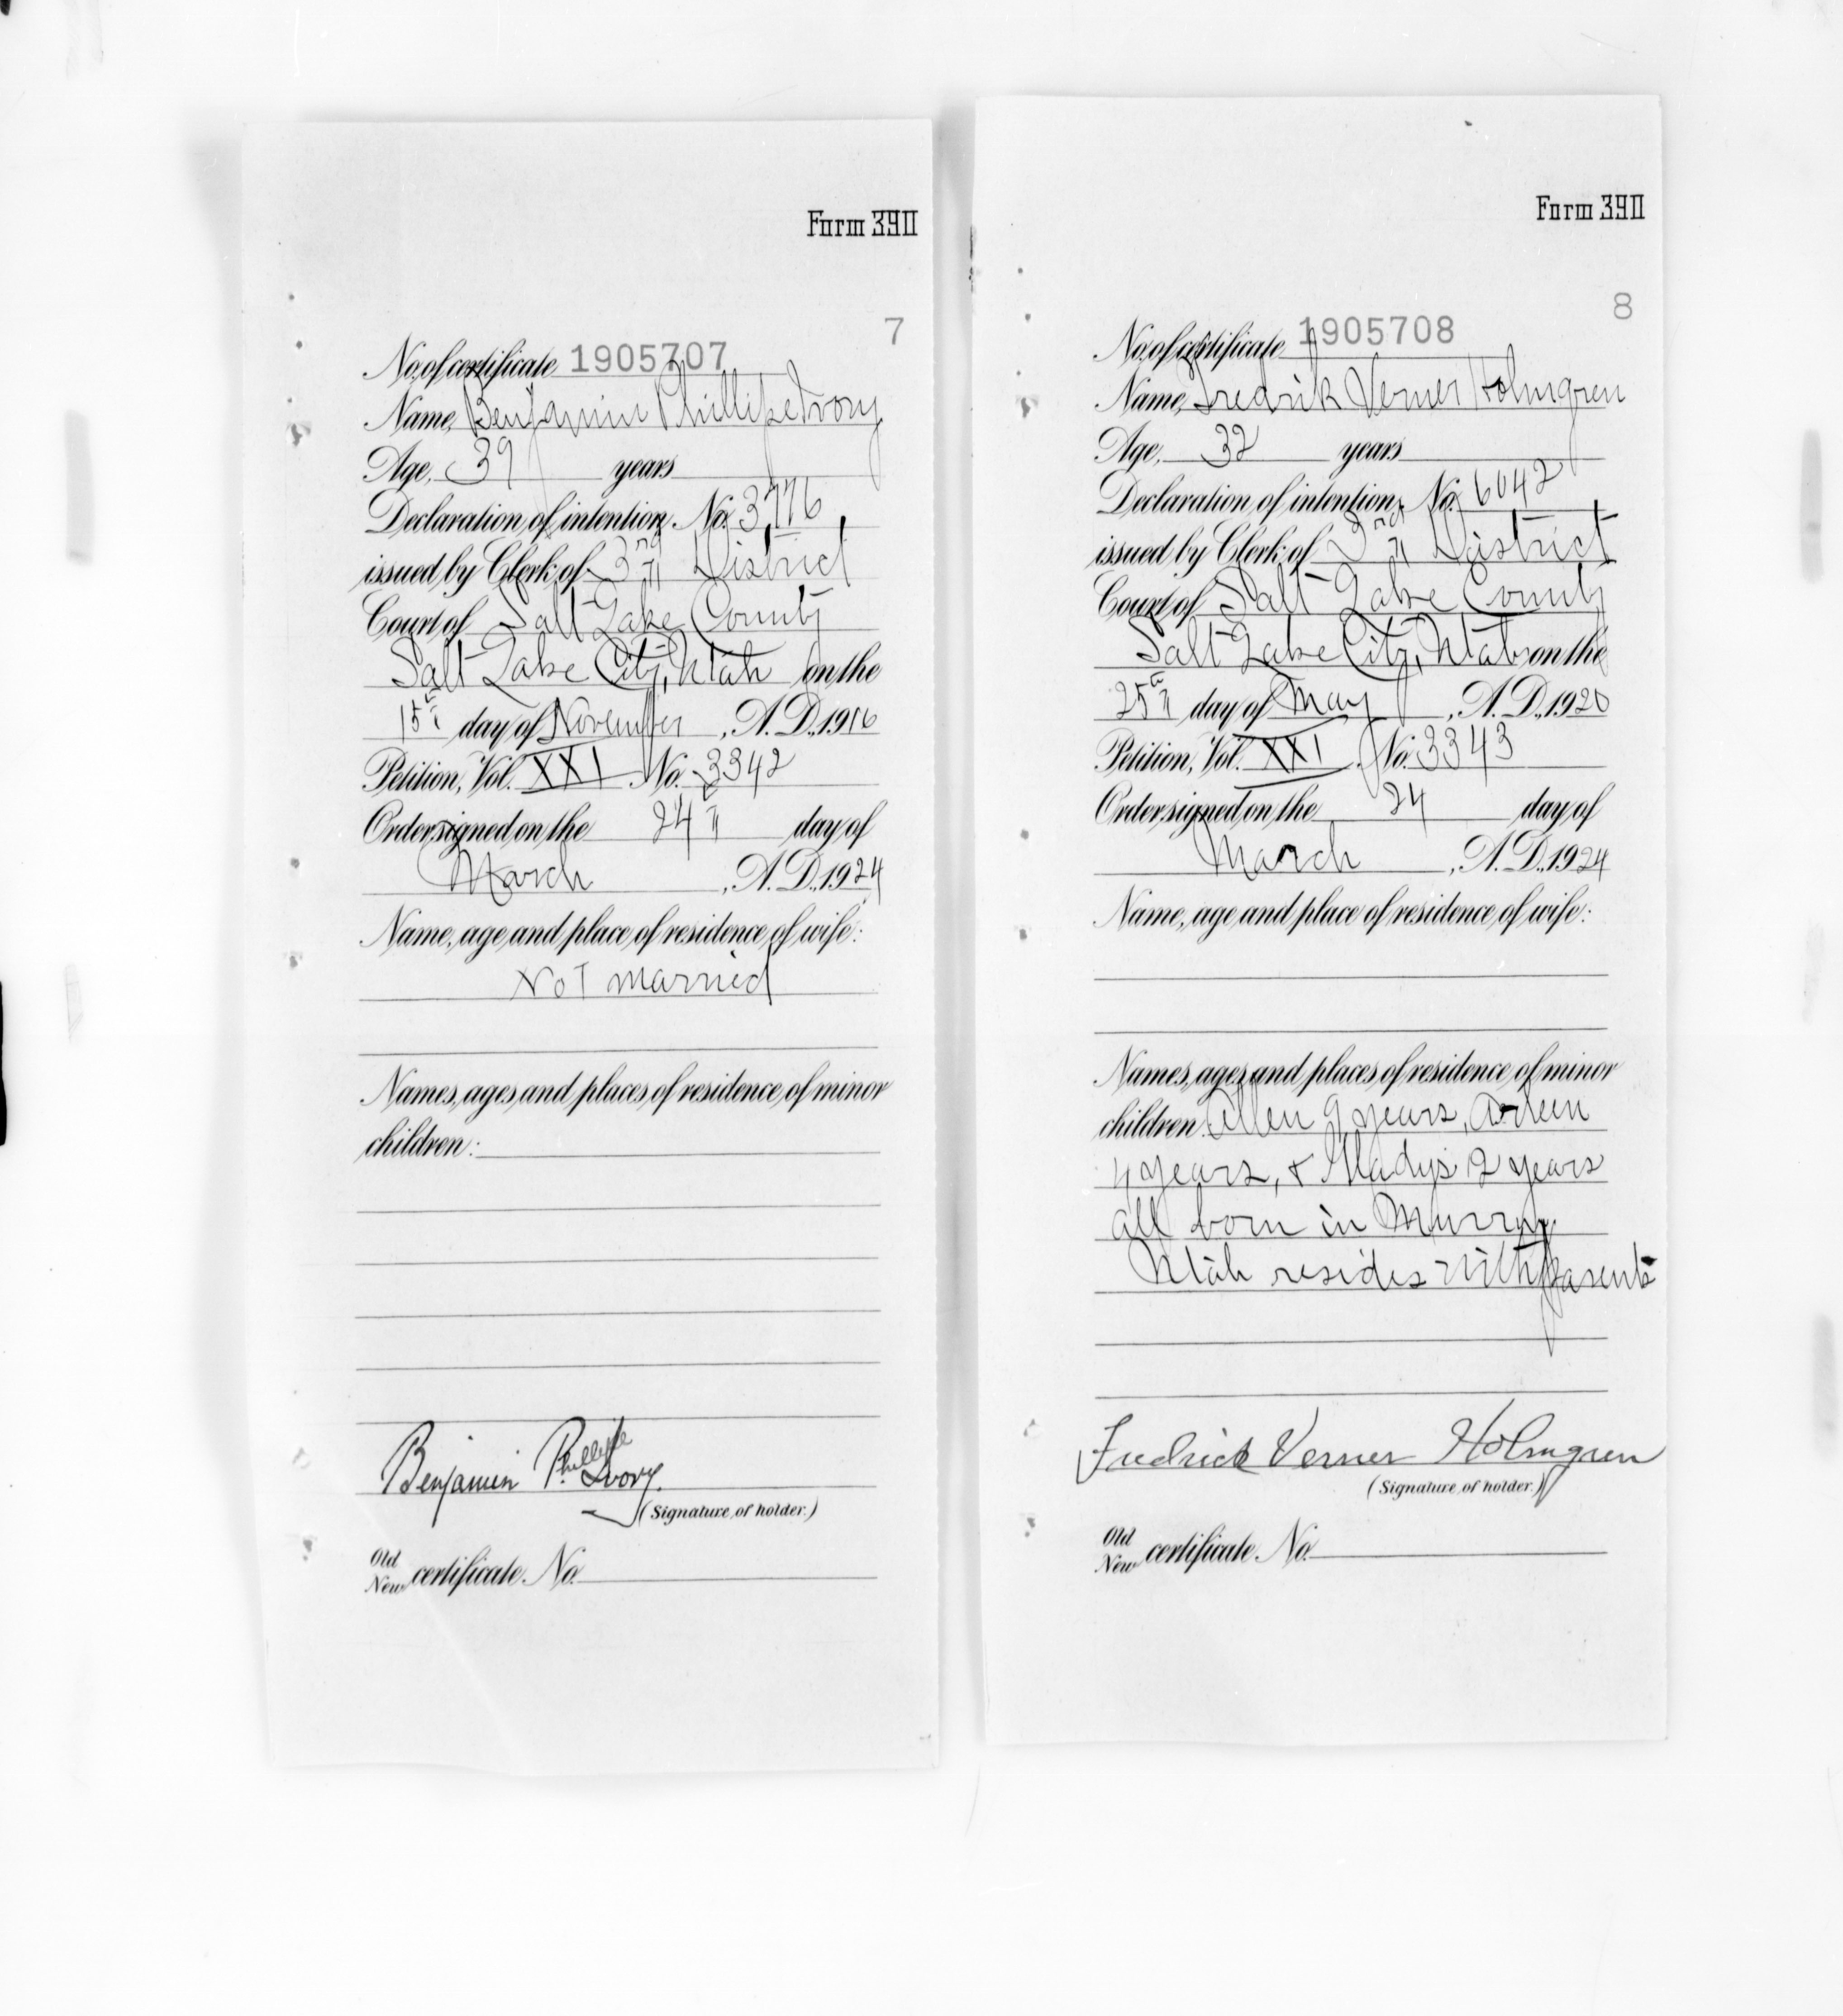 Form 390
7
No. of certificate 1905707
Name, Benjamin Phillipe Ivory
Age, 39 years
Declaration of intention, No. 3776
issued by Clerk of 3rd District
Court of Salt Lake County
Salt Lake City, Utah on the
15th day of November, A.D. 1916
Petition, Vol. XXI No. 3342
Order signed on the 24th day of
March, A.D. 1924
Name, age and place of residence of wife:
Not married
Names, ages and places of residence of minor
children:
Benjamin Phillipe Ivory.
(Signature of holder.)
Old
New certificate No.
Form 390
8
No. of certificate 1905708
Name, Fredrik Verner Holmgren
Age, 32 years
Declaration of intention, No. 6042
issued by Clerk of 3rd District
Court of Salt Lake County
Salt Lake City, Utah on the
25th day of May, A.D. 1920
Petition, Vol. XXI, No. 3343
Order signed on the 24 day of
March, A.D. 1924
Name, age and place of residence of wife:
Names, ages and places of residence of minor
children: Allen 9 years,
4 years, & Gladys 2 years
all born in Murray
Utah resides with parents
Fredrick Verner Holmgren
(Signature of holder.)
Old
New certificate No.